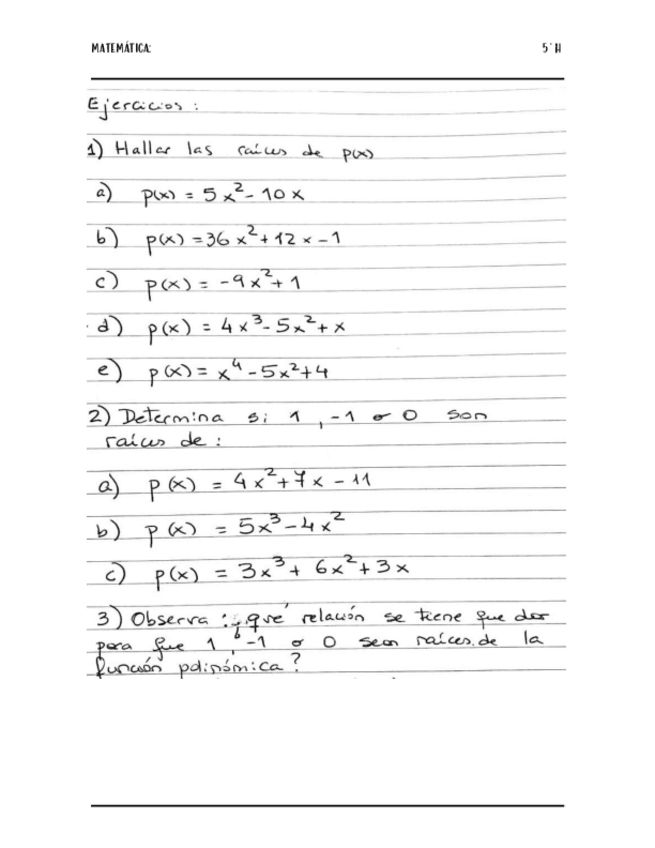 MATEMÁTICA: 5°H
Ejercicios:
1) Hallar las raíces de p(x)
a) p(x) = 5x² - 10x
b) p(x) = 36x² + 12x - 1
c) p(x) = -9x² + 1
d) p(x) = 4x³ - 5x² + x
e) p(x) = x⁴ - 5x² + 4
2) Determina si 1, -1 o 0 son
raíces de:
a) p(x) = 4x² + 7x - 11
b) p(x) = 5x³ - 4x²
c) p(x) = 3x³ + 6x² + 3x
3) Observa: ¿qué relación se tiene que dar
para que 1, -1 o 0 sean raíces de la
función polinómica?